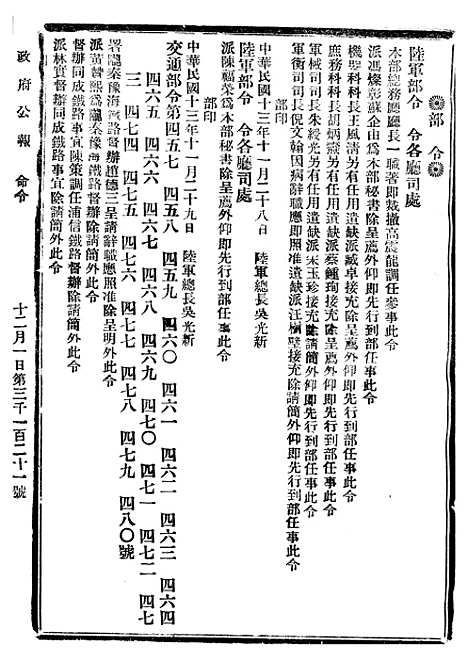 部令
陸軍部令 令各廳司處
本部總務廳廳長一職著即裁撤高震龍調任參事此令
派馮燦彰蘇企由爲本部秘書除呈薦外仰即先行到部任事此令
機要科科長王風清另有任用遺缺派臧卓接充除呈薦外仰即先行到部任事此令
庶務科科長胡炳燾另有任用遺缺派蔡鍾珣接充除呈薦外仰即先行到部任事此令
軍械司司長朱綬光另有任用遺缺派宋玉珍接充除請簡外仰即先行到部任事此令
軍衡司司長倪文翰因病辭職應即照准遺缺派汪樹璧接充除請簡外仰即先行到部任事此令
部印
中華民國十三年十一月二十八日 陸軍總長吳光新
陸軍部令 令各廳司處
派陳福業爲本部秘書除呈薦外仰即先行到部任事此令
部印
中華民國十三年十一月二十九日 陸軍總長吳光新
交通部令第四五七 四五八 四五九 四六〇 四六一 四六二 四六三 四六四
四六五 四六六 四六七 四六八 四六九 四七〇 四七一 四七二 四七
三 四七四 四七五 四七六 四七七 四七八 四七九 四八〇號
署隴秦豫海鐵路督辦趙德三呈請辭職應照准除呈明外此令
派黃督熙爲隴秦豫海鐵路督辦除請簡外此令
督辦同成鐵路事宜陳策調任浦信鐵路督辦除請簡外此令
派林實督辦同成鐵路事宜除請簡外此令
政府公報 命令 十二月一日第三千一百二十一號